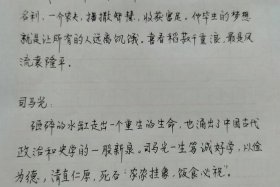 名利，一个农夫，播撒智慧，收获富足。他毕生的梦想
就是让所有的人远离饥饿。喜看稻菽千重浪，最是风
流袁隆平。
司马光：
砸碎的水缸走出一个重生的生命，也涌出了中国古代
政治和史学的一股新泉。司马光一生笃诚好学，以俭
为德，清直仁厚，死后"京挂象，饭食必祝"。